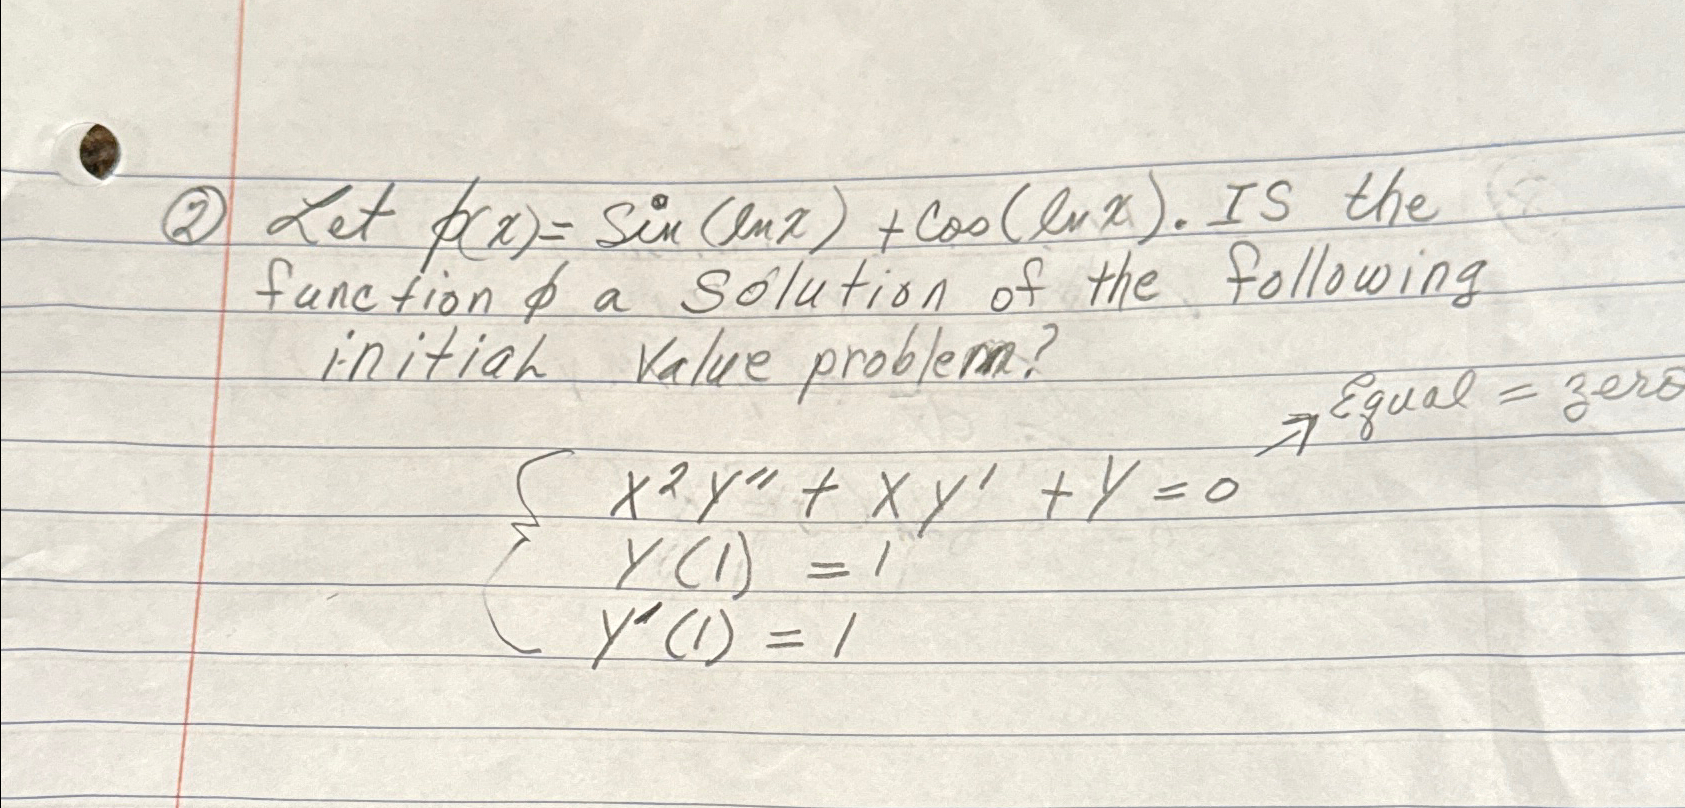 ② Let ϕ(x) = Sin (lnx) + Cos (lnx). IS the
function ϕ a Solution of the following
initial Value problem?
→ Equal = zero
x²y" + xy' + y = 0
y(1) = 1
y'(1) = 1